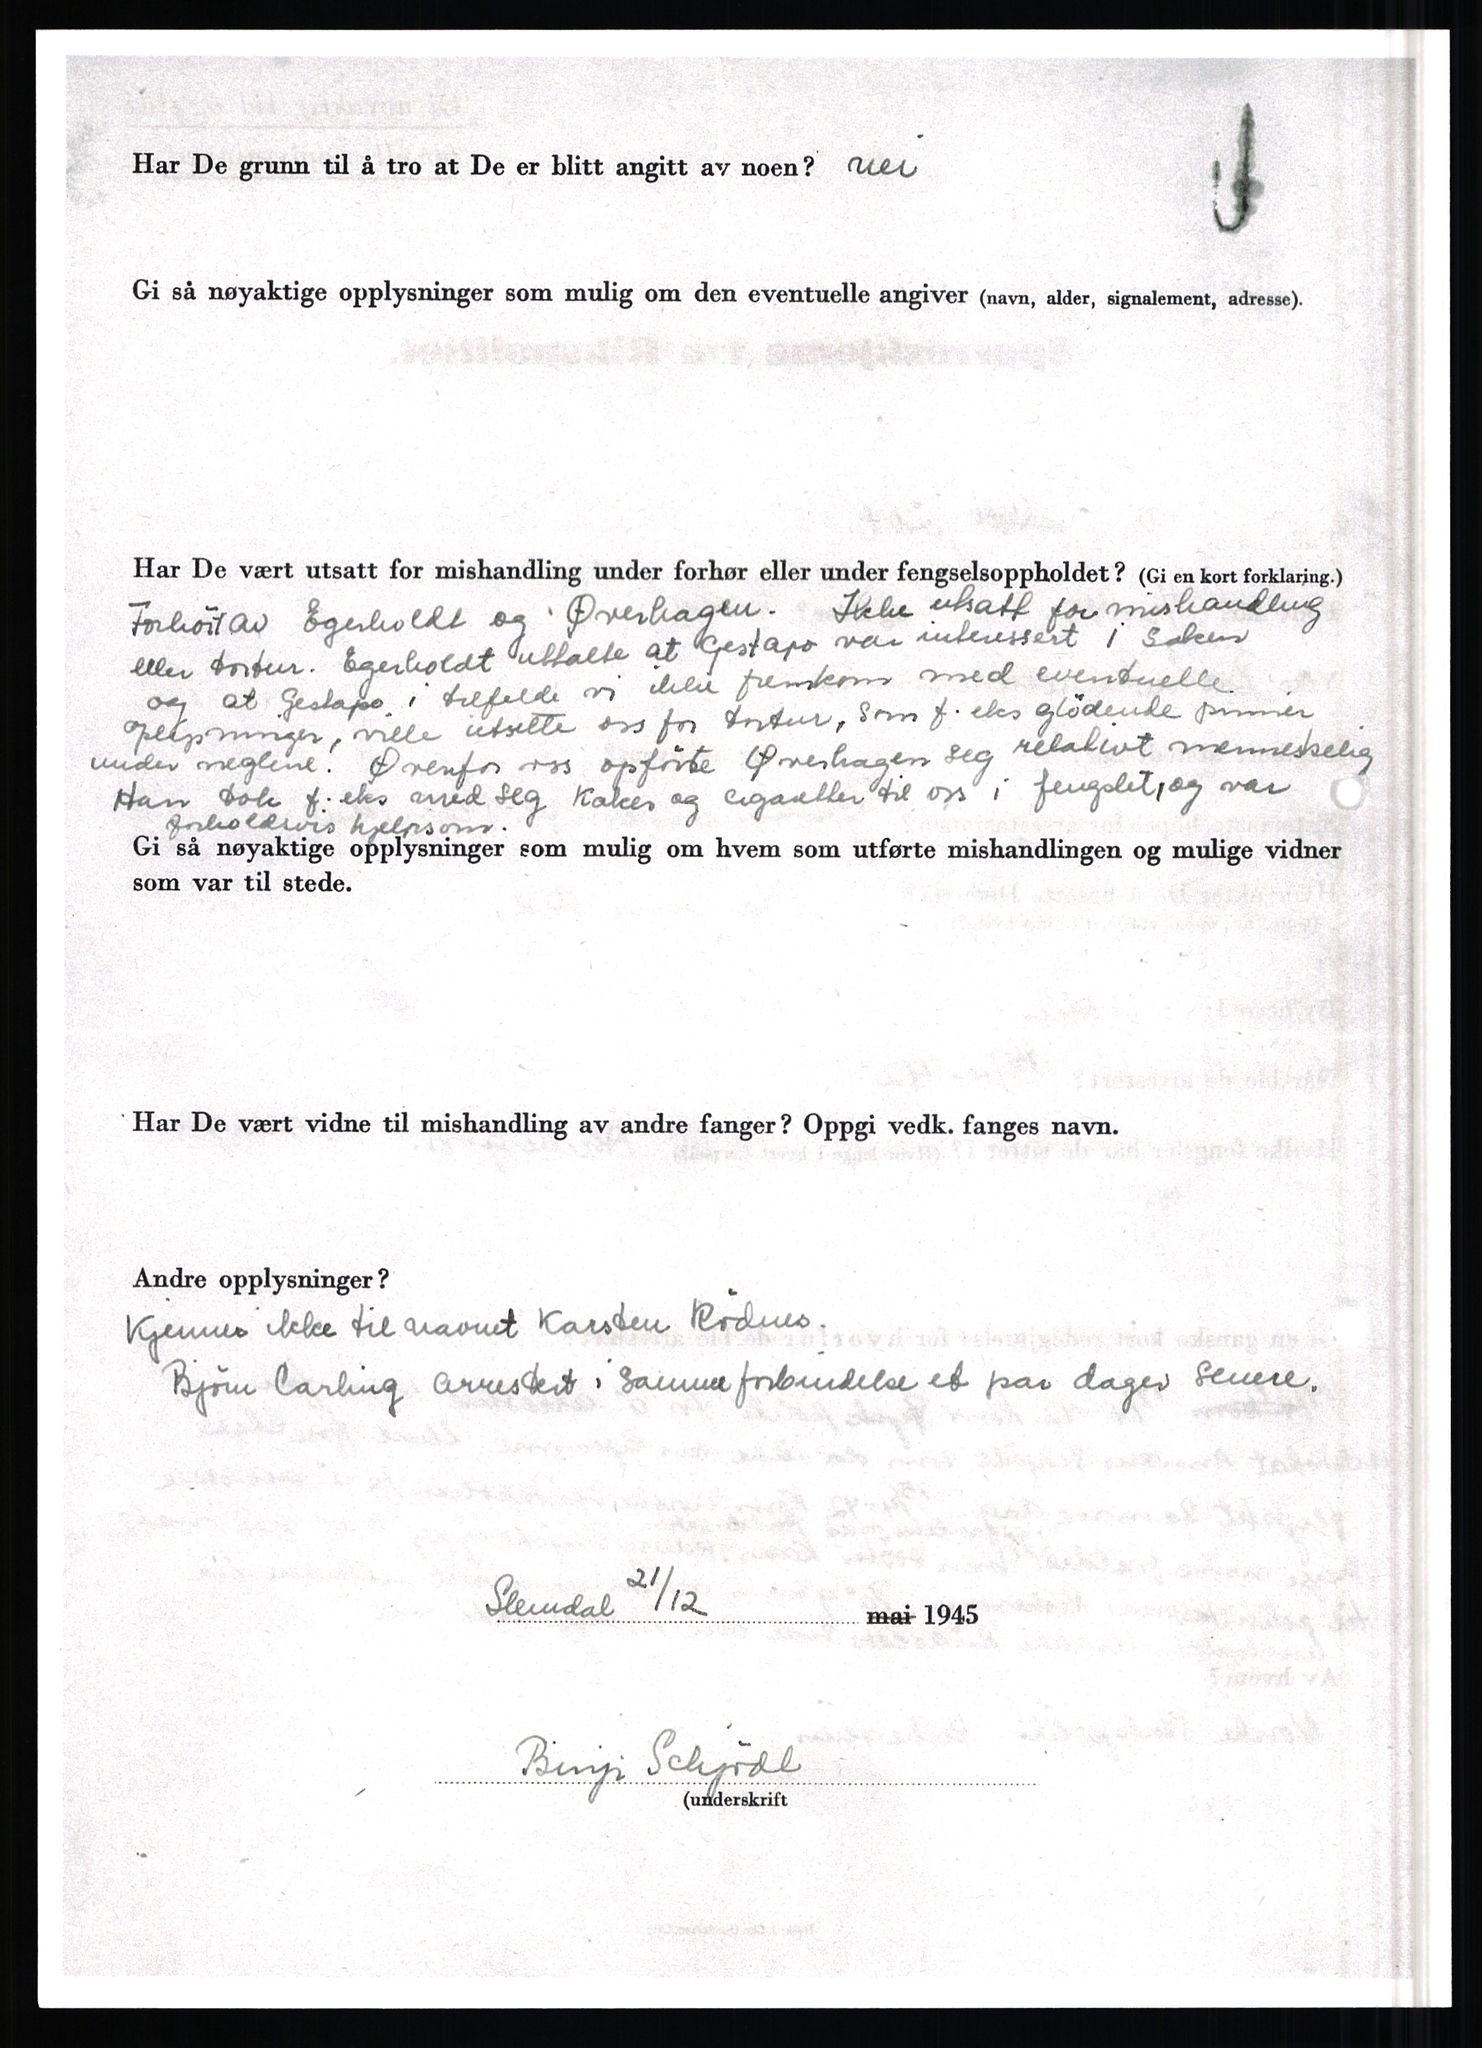 Har De grunn til å tro at De er blitt angitt av noen? nei
Gi så nøyaktige opplysninger som mulig om den eventuelle angiver (navn, alder, signalement, adresse).
Har De vært utsatt for mishandling under forhør eller under fengselsoppholdet? (Gi en kort forklaring.)
Forhört av Egerholdt og Øverhagen. Ikke utsatt for mishandling
eller tortur. Egerholdt uttalte at Gestapo var interessert i saken
og at Gestapo i tilfelde vi ikke fremkom med eventuelle
oplysninger, ville utsette oss for tortur, som f. eks glödende pinner
under neglene. Ovenfor oss opförte Øverhagen seg relativt menneskelig
Han tok f. eks med seg kaker og cigaretter til oss i fengslet, og var
forholdsvis hjelpsom.
Gi så nøyaktige opplysninger som mulig om hvem som utførte mishandlingen og mulige vidner
som var til stede.
Har De vært vidne til mishandling av andre fanger? Oppgi vedk. fanges navn.
Andre opplysninger?
Kjenner ikke til navnet Karsten Rödnes.
Björn Carling arrestert i samme forbindelse et par dager senere.
Slemdal 21/12 mai 1945
Schjödt
(underskrift